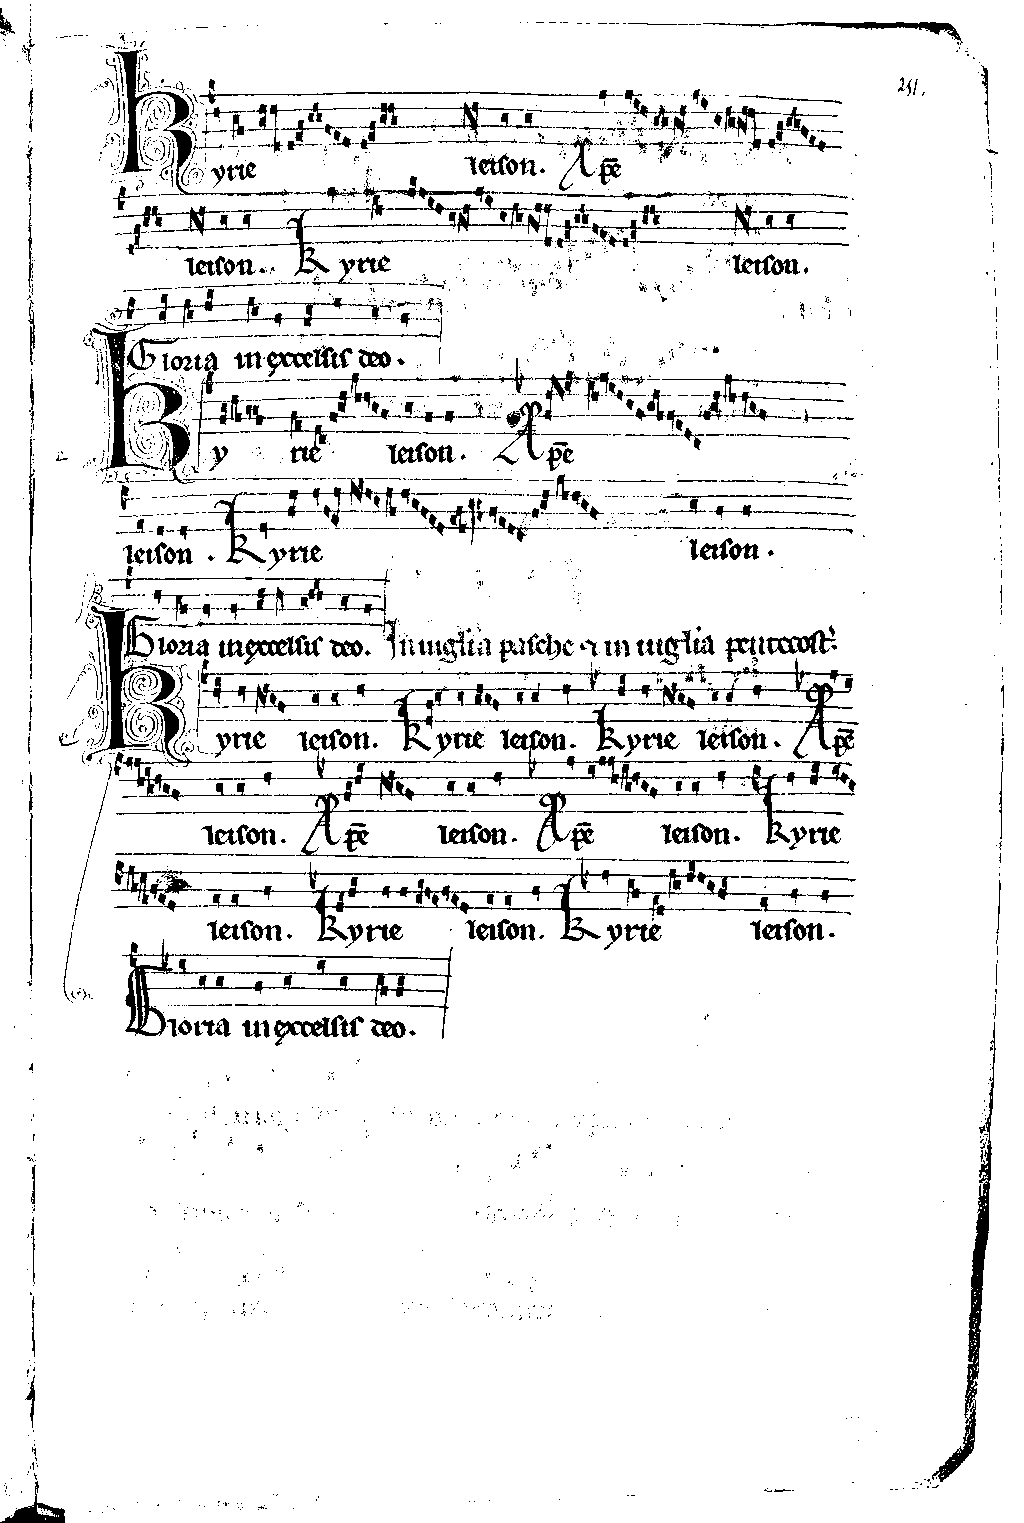 251.
Kyrie leison. Xp̄e
leison. Kyrie leison.
Gloria in excelsis deo.
Kyrie leison. Xp̄e
leison. Kyrie leison.
Gloria in excelsis deo. In uigilia pasche & in uigilia pentecost.
Kyrie leison. Kyrie leison. Kyrie leison. Xp̄e
leison. Xp̄e leison. Xp̄e leison. Kyrie
leison. Kyrie leison. Kyrie leison.
Gloria in excelsis deo.